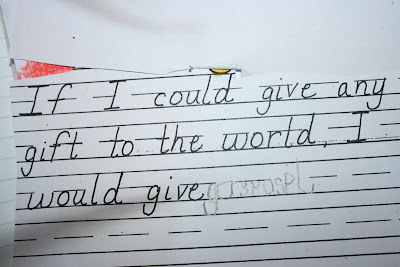 If I could give any
gift to the world, I
would give